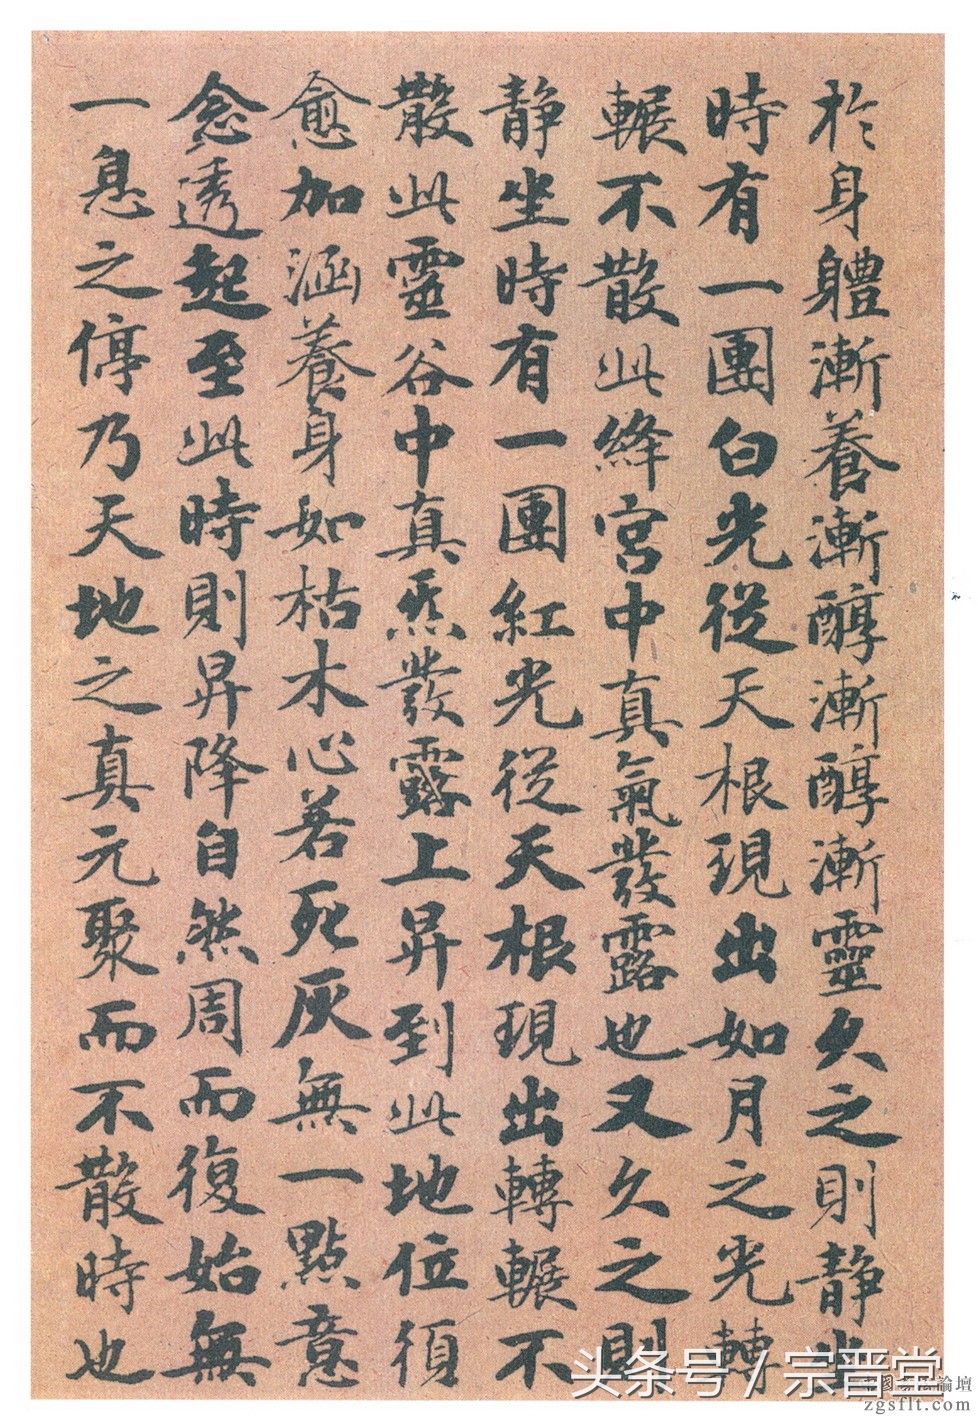 於身軆漸養漸醇漸醇漸靈久之則静坐
時有一團白光從天根現出如月之光轉
輾不散此絳宮中真氣發露也又久之則
静坐時有一團紅光從天根現出轉輾不
散此靈谷中真炁發露上昇到此地位須
愈加涵養身如枯木心若死灰無一點意
念透起至此時則昇降自然周而復始無
一息之停乃天地之真元聚而不散時也
头条号 / 宗晋堂
zgsflt.com